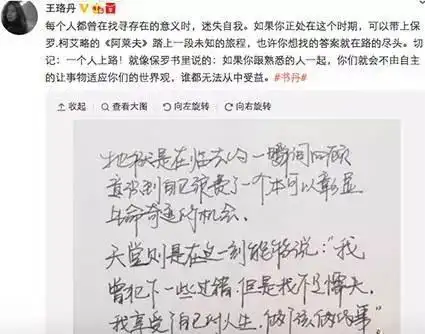 王珞丹
每个人都曾在找寻存在的意义时，迷失自我。如果你正处在这个时期，可以带上保
罗.柯艾略的《阿莱夫》踏上一段未知的旅程，也许你想找的答案就在路的尽头。切
记：一个人上路！就像保罗书里说的：如果你跟熟悉的人一起，你们就会不由自主
的让事物适应你们的世界观，谁都无法从中受益。#书丹#
收起 查看大图 向左旋转 向右旋转
地狱是在临去的一瞬间回顾
意识到自己浪费了一个本可以彰显
生命奇迹的机会.
天堂则是在这一刻能够说：“我
曾犯下一些过错.但是我不是懦夫.
我享受了自己的人生 做了该做的事”